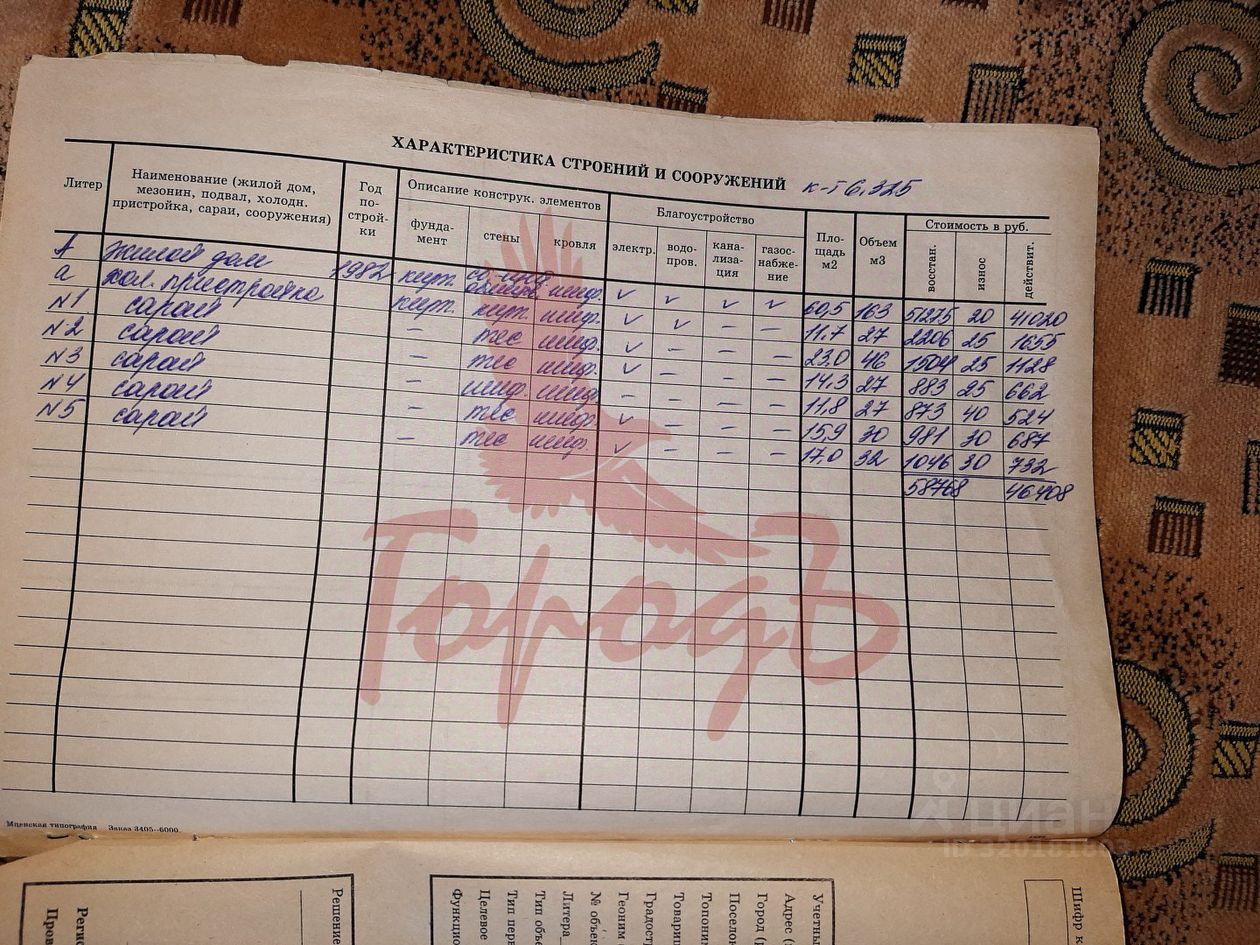 ХАРАКТЕРИСТИКА СТРОЕНИЙ И СООРУЖЕНИЙ к-т 6,325
Литер
Наименование (жилой дом, мезонин, подвал, холодн. пристройка, сараи, сооружения)
Год по-стройки
Описание конструк. элементов
фунда-мент
стены
кровля
Благоустройство
электр.
водо-пров.
кана-лиза-ция
газос-набже-ние
Пло-щадь м2
Объем м3
Стоимость в руб.
восстан.
износ
действит.
А жилой дом 1982 кирп. шиф. ✓ ✓ ✓ ✓ 60,5 163 51275 20 41020
а хол. пристройка кирп. кирп. шиф. ✓ ✓ — — 11,7 27 2206 25 1655
N1 сарай — тес шиф. ✓ — — — 23,0 46 1504 25 1128
N2 сарай — тес шиф. ✓ — — — 14,3 27 883 25 662
N3 сарай — шиф. шиф. — — — — 11,8 27 873 40 524
N4 сарай — тес шифр. ✓ — — — 15,9 30 981 30 687
N5 сарай — тес шиф. ✓ — — — 17,0 32 1046 30 732
58768 46408
ГородЪ
Мценская типография Заказ 3405—6000.
циан
Решение
Учетны
Адрес (
Город (
Посело
Топоним
Товари
Градост
Геоним (
№ объек
Литера
Тип объе
Тип перв
Целевое
Функцио
Шифр к